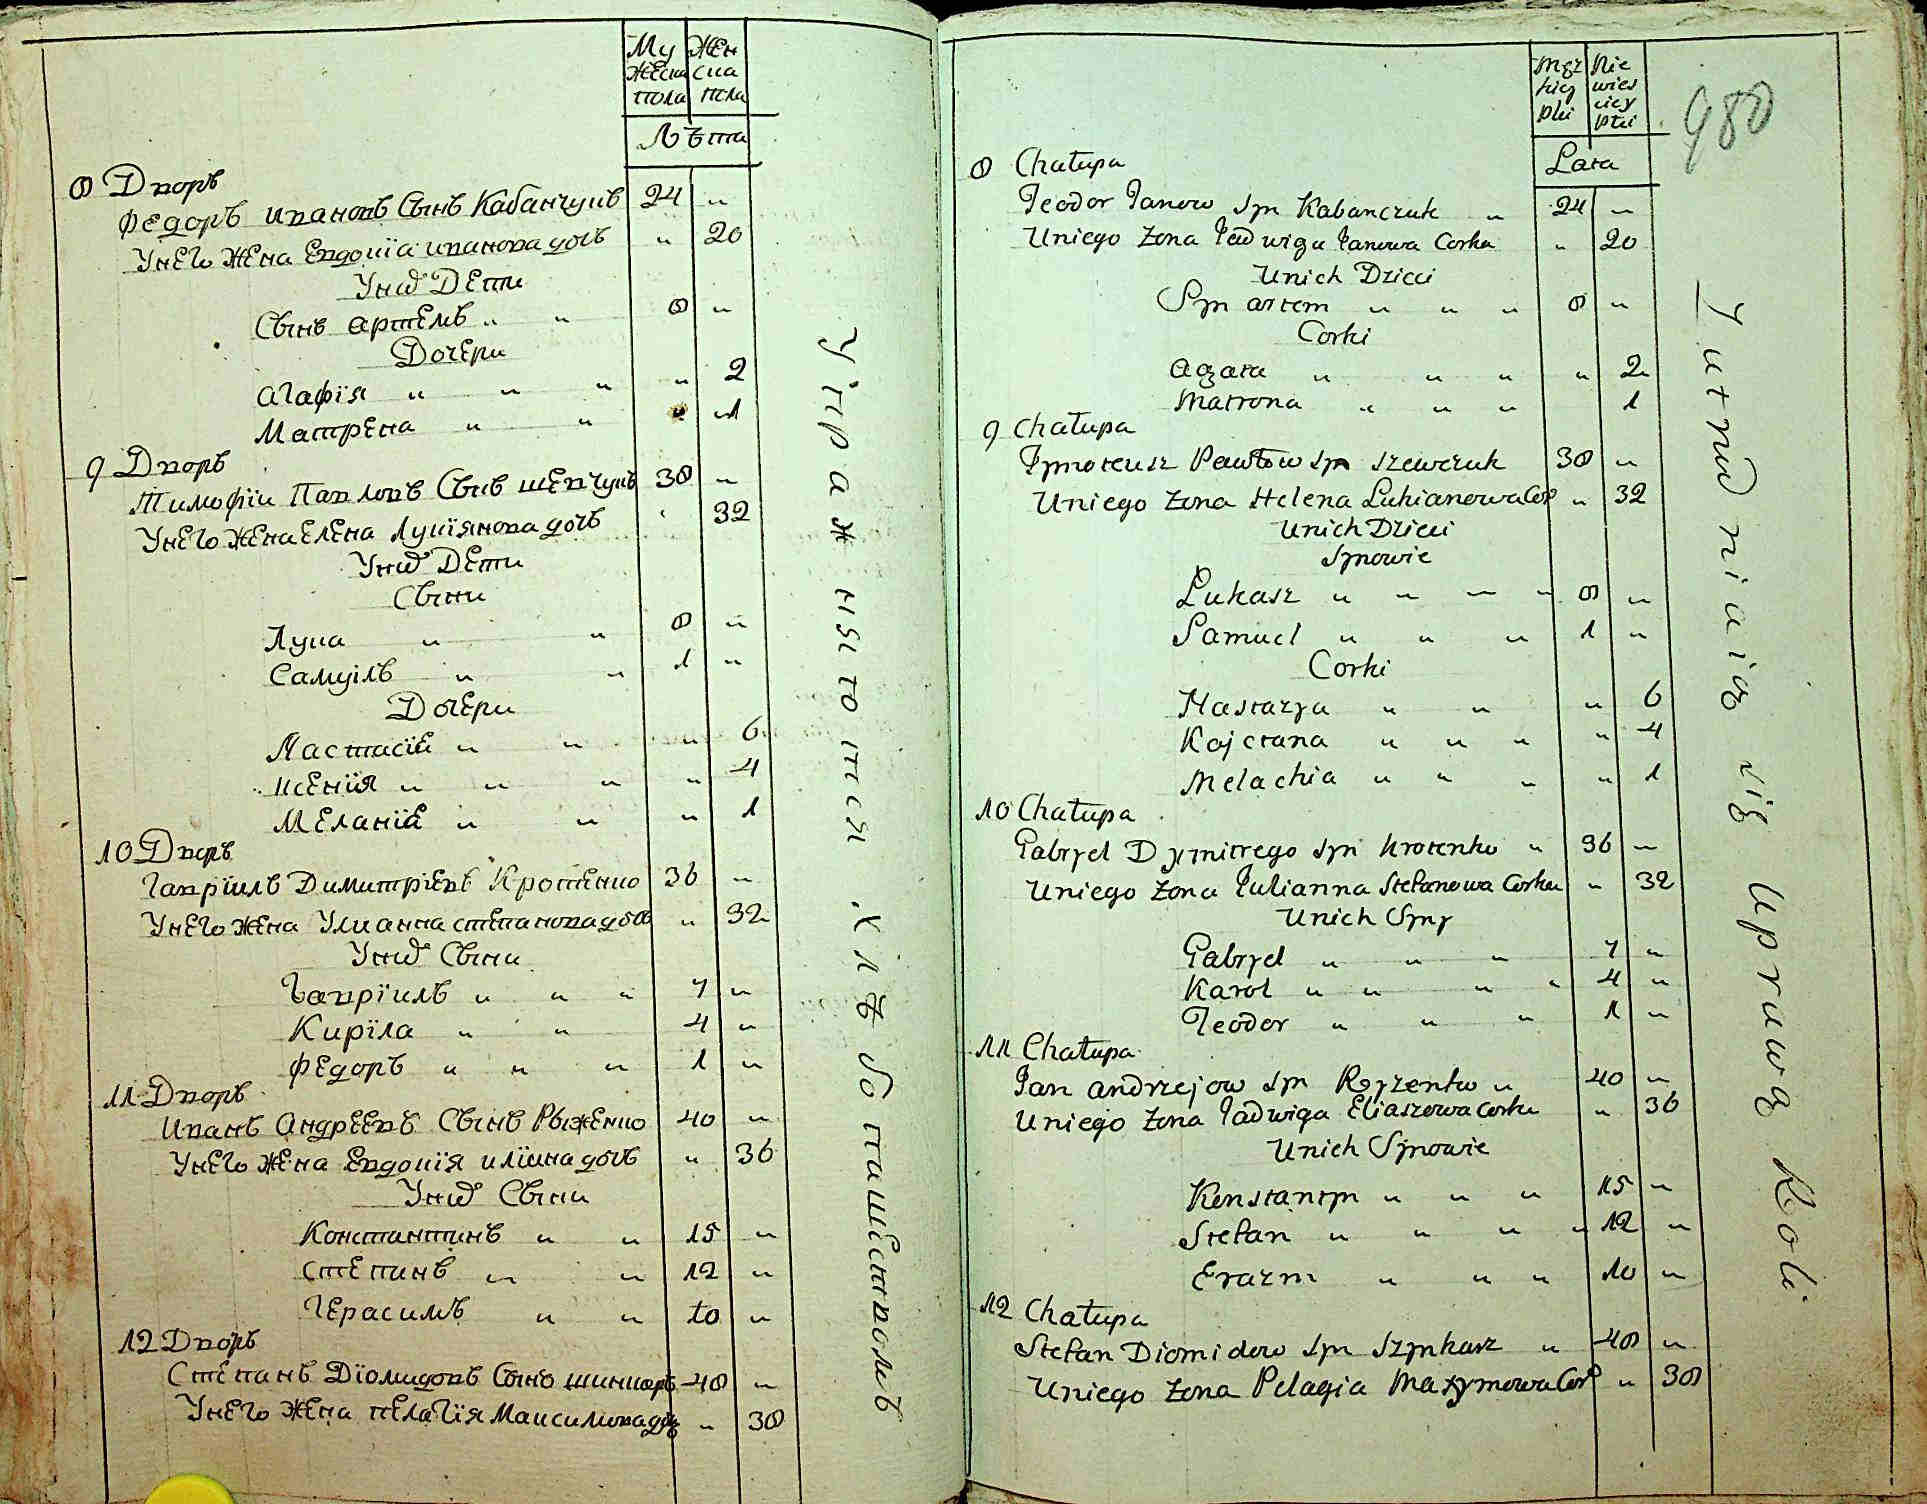 Му Жен
жеска ска
пола пола
Лѣта
8 Дворъ
Федоръ Ивановъ Сынъ Кабанчукъ 24 "
Унего Жена Евдокїа иванова дочь " 20
Унихъ Дети
Сынъ артемъ " " 8 "
Дочери
агафїя " " " " 2
Матрена " " " 1
9 Дворъ
Тимофїи Павловъ Сынъ шевчукъ 38 "
Унего Жена Елена Лукїянова дочь " 32
Унихъ Дети
Сыни
Лука " " 8 "
Самуілъ " " 1 "
Дочери
Настасїѣ " " " 6
ксенїя " " " " 4
Меланїѣ " " " 1
10 Дворъ
Гаврїилъ Димитрїевъ Кротенко 36 "
Унего жена Улианна степанова дочь " 32
Унихъ Сыни
Гаврїилъ " " " 7 "
Кирїла " " 4 "
Федоръ " " " 1 "
11 Дворъ
Иванъ Андреевъ Сынъ Рыженко 40 "
Унего жена Евдокїя илїина дочь " 36
Унихъ Сыни
Константинъ " " 15 "
степанъ " " 12 "
Герасимъ " " 10 "
12 Дворъ
Степанъ Дїомидовъ Сынъ шинкаръ 48 "
Унего жена пелагїя Максимова дочь " 38
Упражняются хлѣбопашенствомъ
Męz Nie
kiey wies
płci ciey
płci
Lata
980
8 Chałupa
Teodor Janow syn Kabanczuk " 24 "
Uniego Zona Jadwiga Janowa Corka " 20
Unich Dzieci
Syn artem " " " 8 "
Corki
agata " " " " 2
Matrona " " " 1
9 Chałupa
Tymoteusz Pawłow syn szewczuk 38 "
Uniego Zona Helena Lukianowa Cor " 32
Unich Dzieci
Synowie
Łukasz " " " " 8 "
Samuel " " " 1 "
Corki
Nastazya " " " 6
Kajetana " " " " 4
Melachia " " " " 1
10 Chałupa
Gabryel Dymitrego syn Krotenko " 36 "
Uniego Zona Julianna Stefanowa Corka " 32
Unich Syny
Gabryel " " " 7 "
Karol " " " " 4 "
Teodor " " " 1 "
11 Chałupa
Jan andrzejow syn Ryzenko " 40 "
Uniego Zona Jadwiga Eliaszowa Corka " 36
Unich Synowie
Konstantyn " " " 15 "
Stefan " " " " 12 "
Erazm " " " 10 "
12 Chałupa
Stefan Diomidow syn Szynkarz " 48 "
Uniego Zona Pelagia Maxymowa Cor " 38
Zatrudniaią się Uprawą Roli